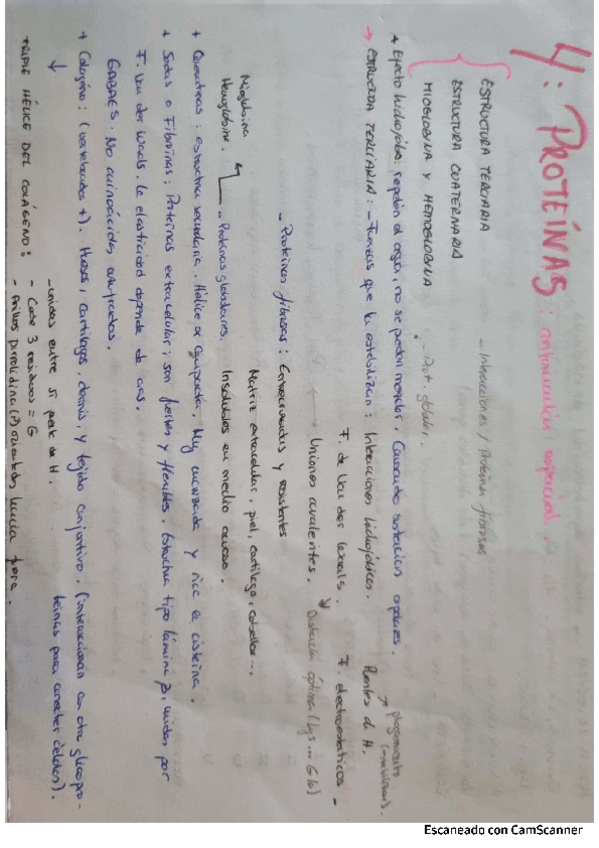 4. PROTEÍNAS: conformación espacial.
ESTRUCTURA TERCIARIA - Interacciones y Proteínas fibrosas
ESTRUCTURA CUATERNARIA
MIOGLOBINA Y HEMOGLOBINA - Prot. globular.
+ Efecto hidrófobo: repelen el agua, no se pueden mezclar. Causando sustancias apolares.
→ ESTRUCTURA TERCIARIA: - Fuerzas que la estabilizan: Interacciones hidrofóbicas. Puentes de H.
F. de Van der Waals. F. electroestáticas -
Uniones covalentes. Distancia óptima (Lys ... Glu)
- Proteínas fibrosas: Consistentes y resistentes
Matriz extracelular, piel, cartílago, cabello...
- Proteínas globulares. Insolubles en medio acuoso.
Mioglobina
Hemoglobina.
+ Queratinas: estructura secundaria. Hélice α compacta. Muy enroscada y rica en cisteína.
+ Sedas o Fibroínas: Proteínas extracelular; son fuertes y flexibles. Estructura tipo lámina β, unidas por
F. Van der Waals. La elasticidad depende de
GABAES. No aminoácidos compactos.
+ Colágeno: (vertebrados +). Huesos, cartílagos, dermis, y tejido conjuntivo. (interaccionan con otras glicopro-
teínas para conectar células).
↓
TRIPLE HÉLICE DEL COLÁGENO:
- Unidas entre sí puente de H.
- Cada 3 residuos = G
- Anillos Pirrolidina (P) orientados hacia fuera.
Escaneado con CamScanner